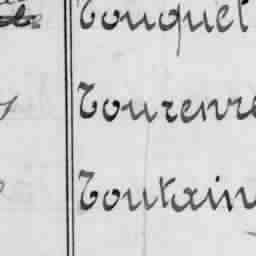 Touquet
Tourenne
Toutain